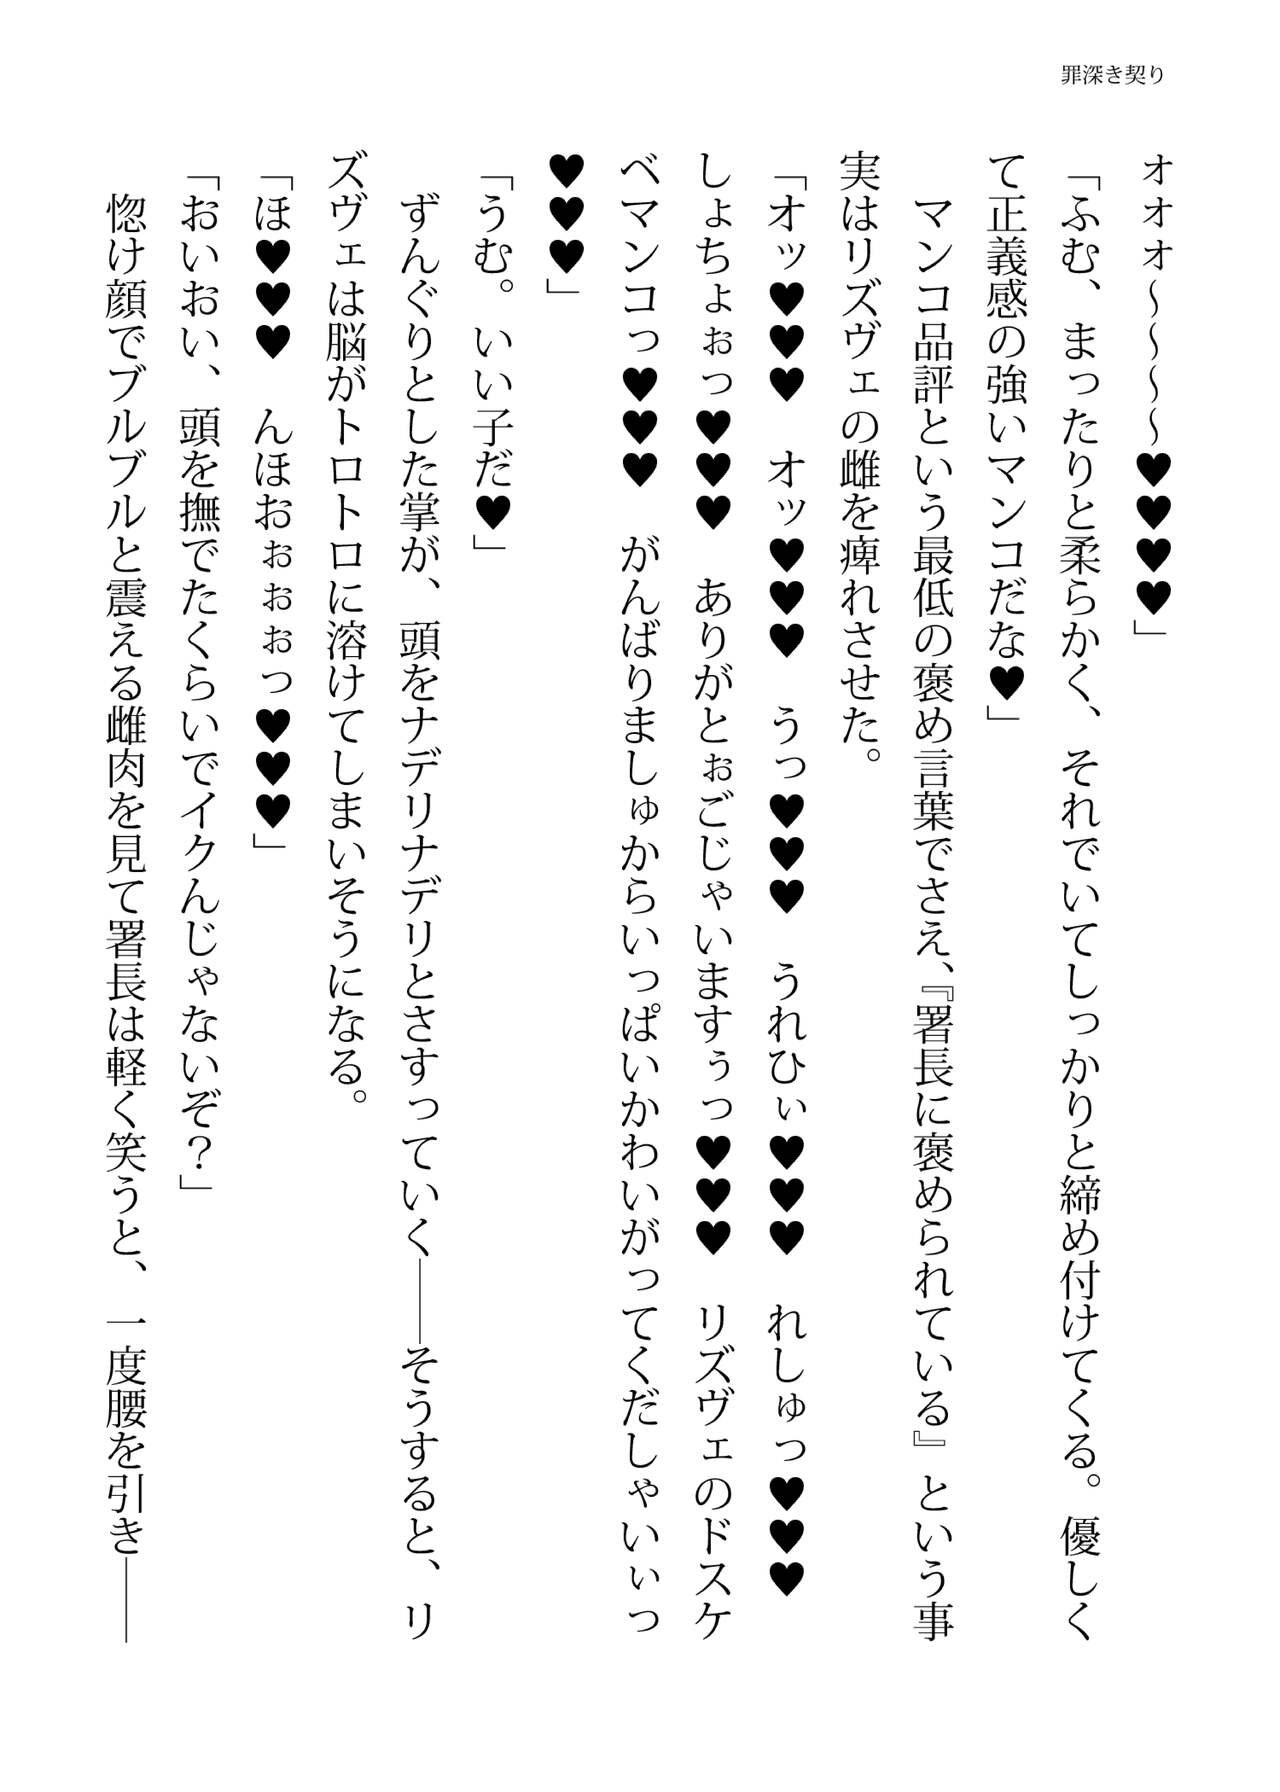 罪深き契り
オオオ～～～～♥♥♥♥」
「ふむ、まったりと柔らかく、それでいてしっかりと締め付けてくる。優しく
て正義感の強いマンコだな♥」
マンコ品評という最低の褒め言葉でさえ、『署長に褒められている』という事
実はリズヴェの雌を痺れさせた。
「オッ♥♥♥　オッ♥♥♥　うっ♥♥♥　うれひぃ♥♥♥　れしゅっ♥♥♥
しょちょぉっ♥♥♥　ありがとぉごじゃいますぅっ♥♥♥　リズヴェのドスケ
ベマンコっ♥♥♥　がんばりましゅからいっぱいかわいがってくだしゃいぃっ
♥♥♥」
「うむ。いい子だ♥」
ずんぐりとした掌が、頭をナデリナデリとさすっていく――そうすると、リ
ズヴェは脳がトロトロに溶けてしまいそうになる。
「ほ♥♥♥　んほおぉぉぉっ♥♥♥」
「おいおい、頭を撫でたくらいでイクんじゃないぞ？」
惚け顔でブルブルと震える雌肉を見て署長は軽く笑うと、一度腰を引き――